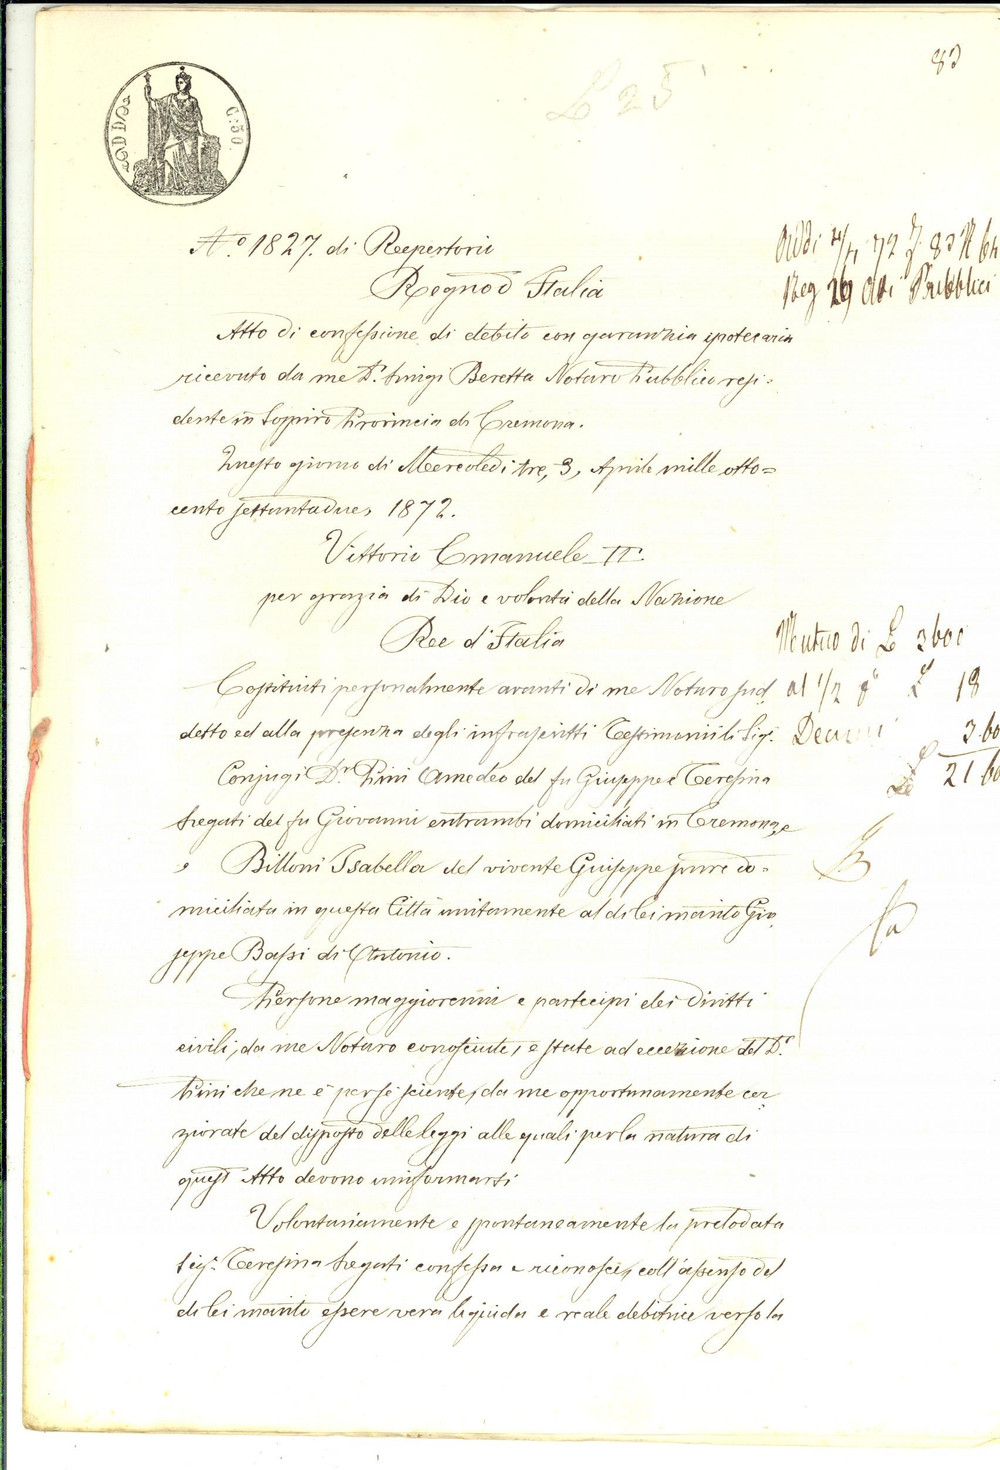 83
L 25
C: 50
N.º 1827. di Repertorio
Regno d'Italia
Atto di confessione di debito con garanzia ipotecaria
ricevuto da me Dr. Luigi Beretta Notaro Pubblico resi=
dente in Sospiro Provincia di Cremona.
Questo giorno di Mercoledi tre, 3, Aprile mille otto=
cento settantadue, 1872.
Vittorio Emanuele II
per grazia di Dio e volontà della Nazione
Ree d'Italia
Costituiti personalmente avanti di me Notaro sud.
detto ed alla presenza degli infrascritti Testimoni li Sigri
Conjugi Dr. Pini Amedeo del fu Giuseppe e Teresina
Fregati del fu Giovanni entrambi domiciliati in Cremona, e
Billoni Isabella del vivente Giuseppe pure do=
miciliata in questa Città unitamente al di lei marito Giu
seppe Bassi di Antonio.
Persone maggiorenni e partecipi dei diritti
civili, da me Notaro conosciute, e state ad eccezione del Dr.
Pini che ne è per se sciente, da me opportunamente cer
ziorate del disposto delle leggi alle quali per la natura di
quest'Atto devono uniformarsi
Volontariamente e spontaneamente la prelodata
Sigra Teresina Fregati confessa e riconosce, coll'assenso del
di lei marito essere vera liquida e reale debitrice verso la
Addi 72 83
Reg 29 Atti Pubblici
Mutuo di L 3600
al 1/2 % L 18
Decimi 3.60
L 21 60